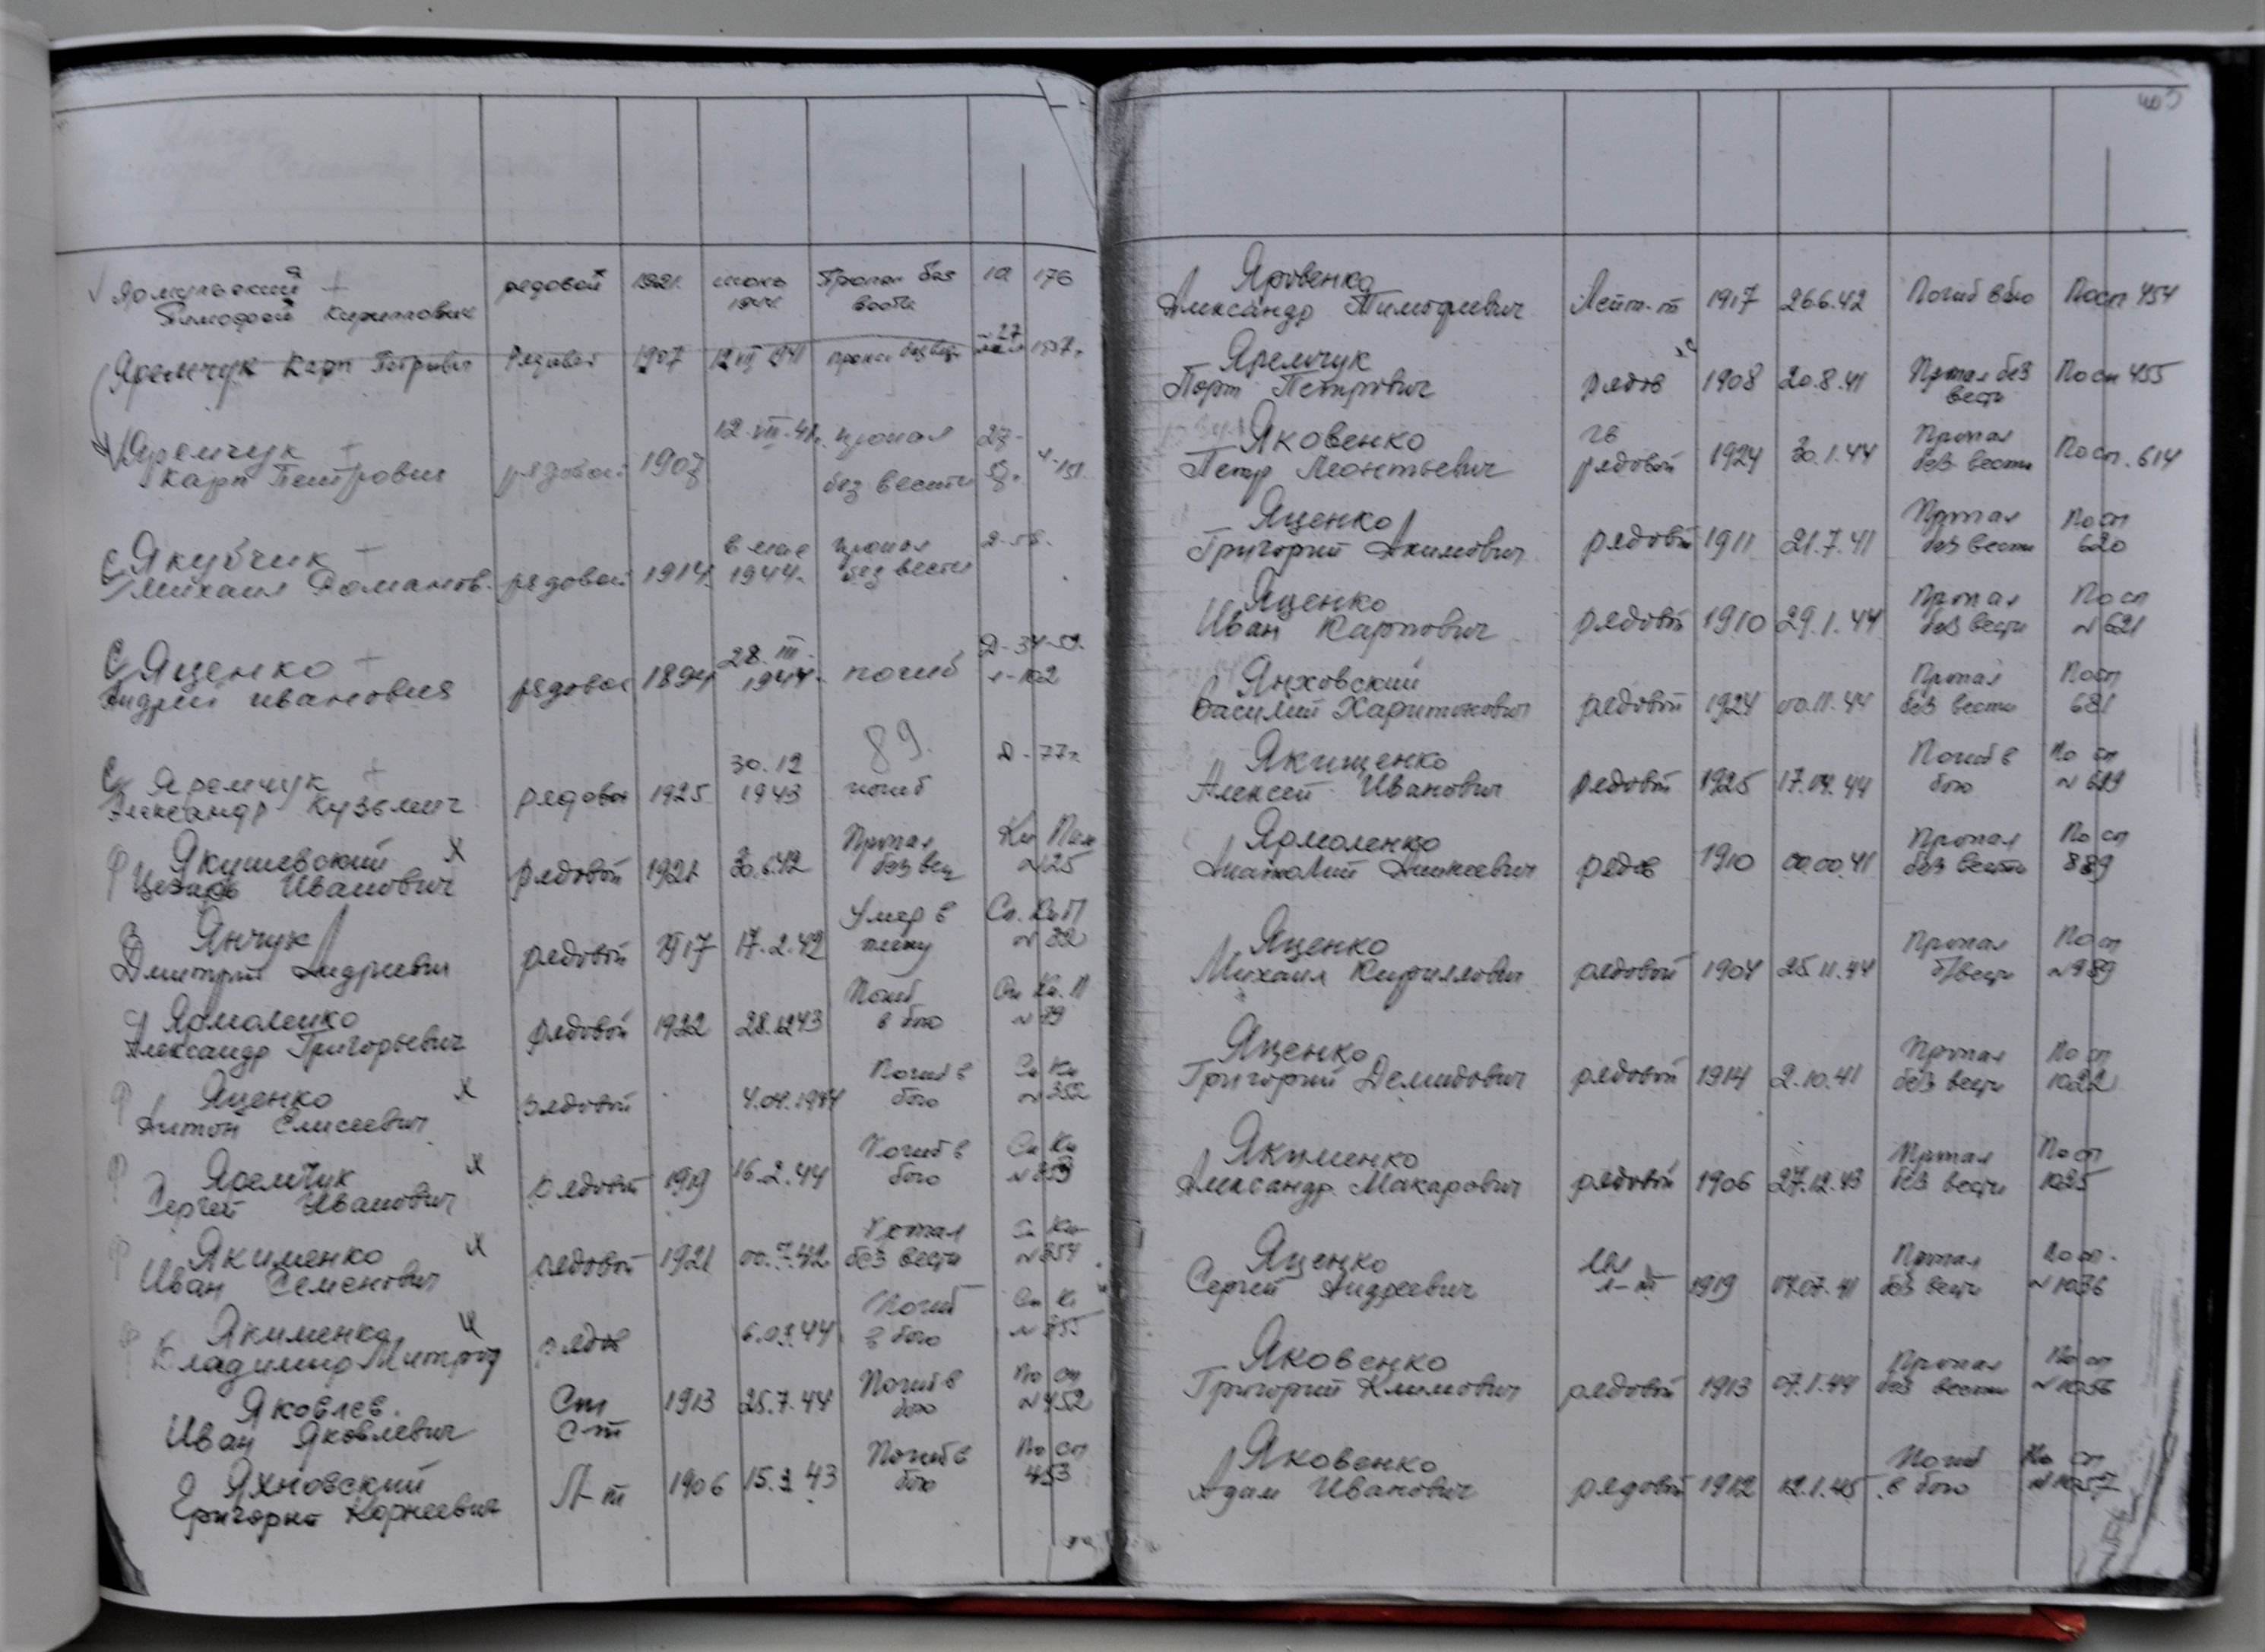 Ярмульский рядовой 1921 июнь Пропал без 10 176
Тимофей Кириллович 1944 вести
Яремчук Карп Петрович Рядовой 1907 12 VIII 1941 27
Яремчук 12.VIII-41г. пропал 27-
Карп Петрович рядовой 1907 без вести
Якубчик в мае пропал
Михаил Романов. рядовой 1914 1944г. без вести
Яценко 28.III- Д-34-59.
Андрей Иванович рядовой 1894 1944г. погиб
89.
Яремчук 30.12 Д-77г.
Александр Кузьмич рядовой 1925 1943 погиб
Якушевский х Пропал Кн Пам
Цезарь Иванович рядовой 1921 30.6.42 без вес N 25
Янчук Умер в Сп. Кн П
Дмитрий Андреевич рядовой 1917 17.2.42 плену N 32
Ярмоленко Погиб Кн. П
Александр Григорьевич рядовой 1922 28.12.43 в бою
Яценко х Погиб в Сп Кн
Антон Елисеевич рядовой 4.04.1944 бою N 352
Яремчук х Погиб в Сп Кн
Сергей Иванович рядовой 1919 16.2.44 бою N 353
Якименко х Пропал Сп Кн
Иван Семенович рядовой 1921 00.7.42 без вести N 354
Якименко Погиб Сп Кн
Владимир Митроф рядов 6.03.44 в бою N 355
Яковлев. Ст 1913 25.7.44 Погиб в По сп
Иван Яковлевич С-т бою N 452
Яхновский Л-т 1906 15.3.43 Погиб в По сп
Григорий Корнеевич бою 453
405
Яровенко
Александр Тимофеевич Лейт-т 1917 26.6.42 Погиб в бою По сп 454
Яремчук
Петрович рядов 1908 20.8.41 Пропал без По сп 455
вести
Яковенко гв Пропал
Петр Леонтьевич рядовой 1924 30.1.44 без вести По сп. 614
Яценко Пропал По сп
Григорий Акимович рядовой 1911 21.7.41 без вести 620
Яценко Пропал По сп
Иван Карпович рядовой 1910 29.1.44 без вести N 621
Янховский Пропал По сп
Василий Харитонович рядовой 1924 00.11.44 без вести 681
Якищенко Погиб в По сп
Алексей Иванович рядовой 1925 17.04.44 бою
Ярмоленко Пропал По сп
Анатолий рядов 1910 00.00.41 без вести 889
Яценко Пропал По сп
Михаил Кириллович рядовой 1904 25.11.44 б/вести N 989
Яценко Пропал По сп
Григорий Демидович рядовой 1914 2.10.41 без вести 1022
Якименко Пропал По сп
Александр Макарович рядовой 1906 27.12.43 без вести 1025
Яценко Мл Пропал По сп.
Сергей Андреевич л-т 1919 07.07.41 без вести N 1036
Яковенко Пропал По сп
Григорий Климович рядовой 1913 07.1.44 без вести N 1056
Яковенко Погиб По сп
Адам Иванович рядовой 1912 12.1.45 в бою N 1057